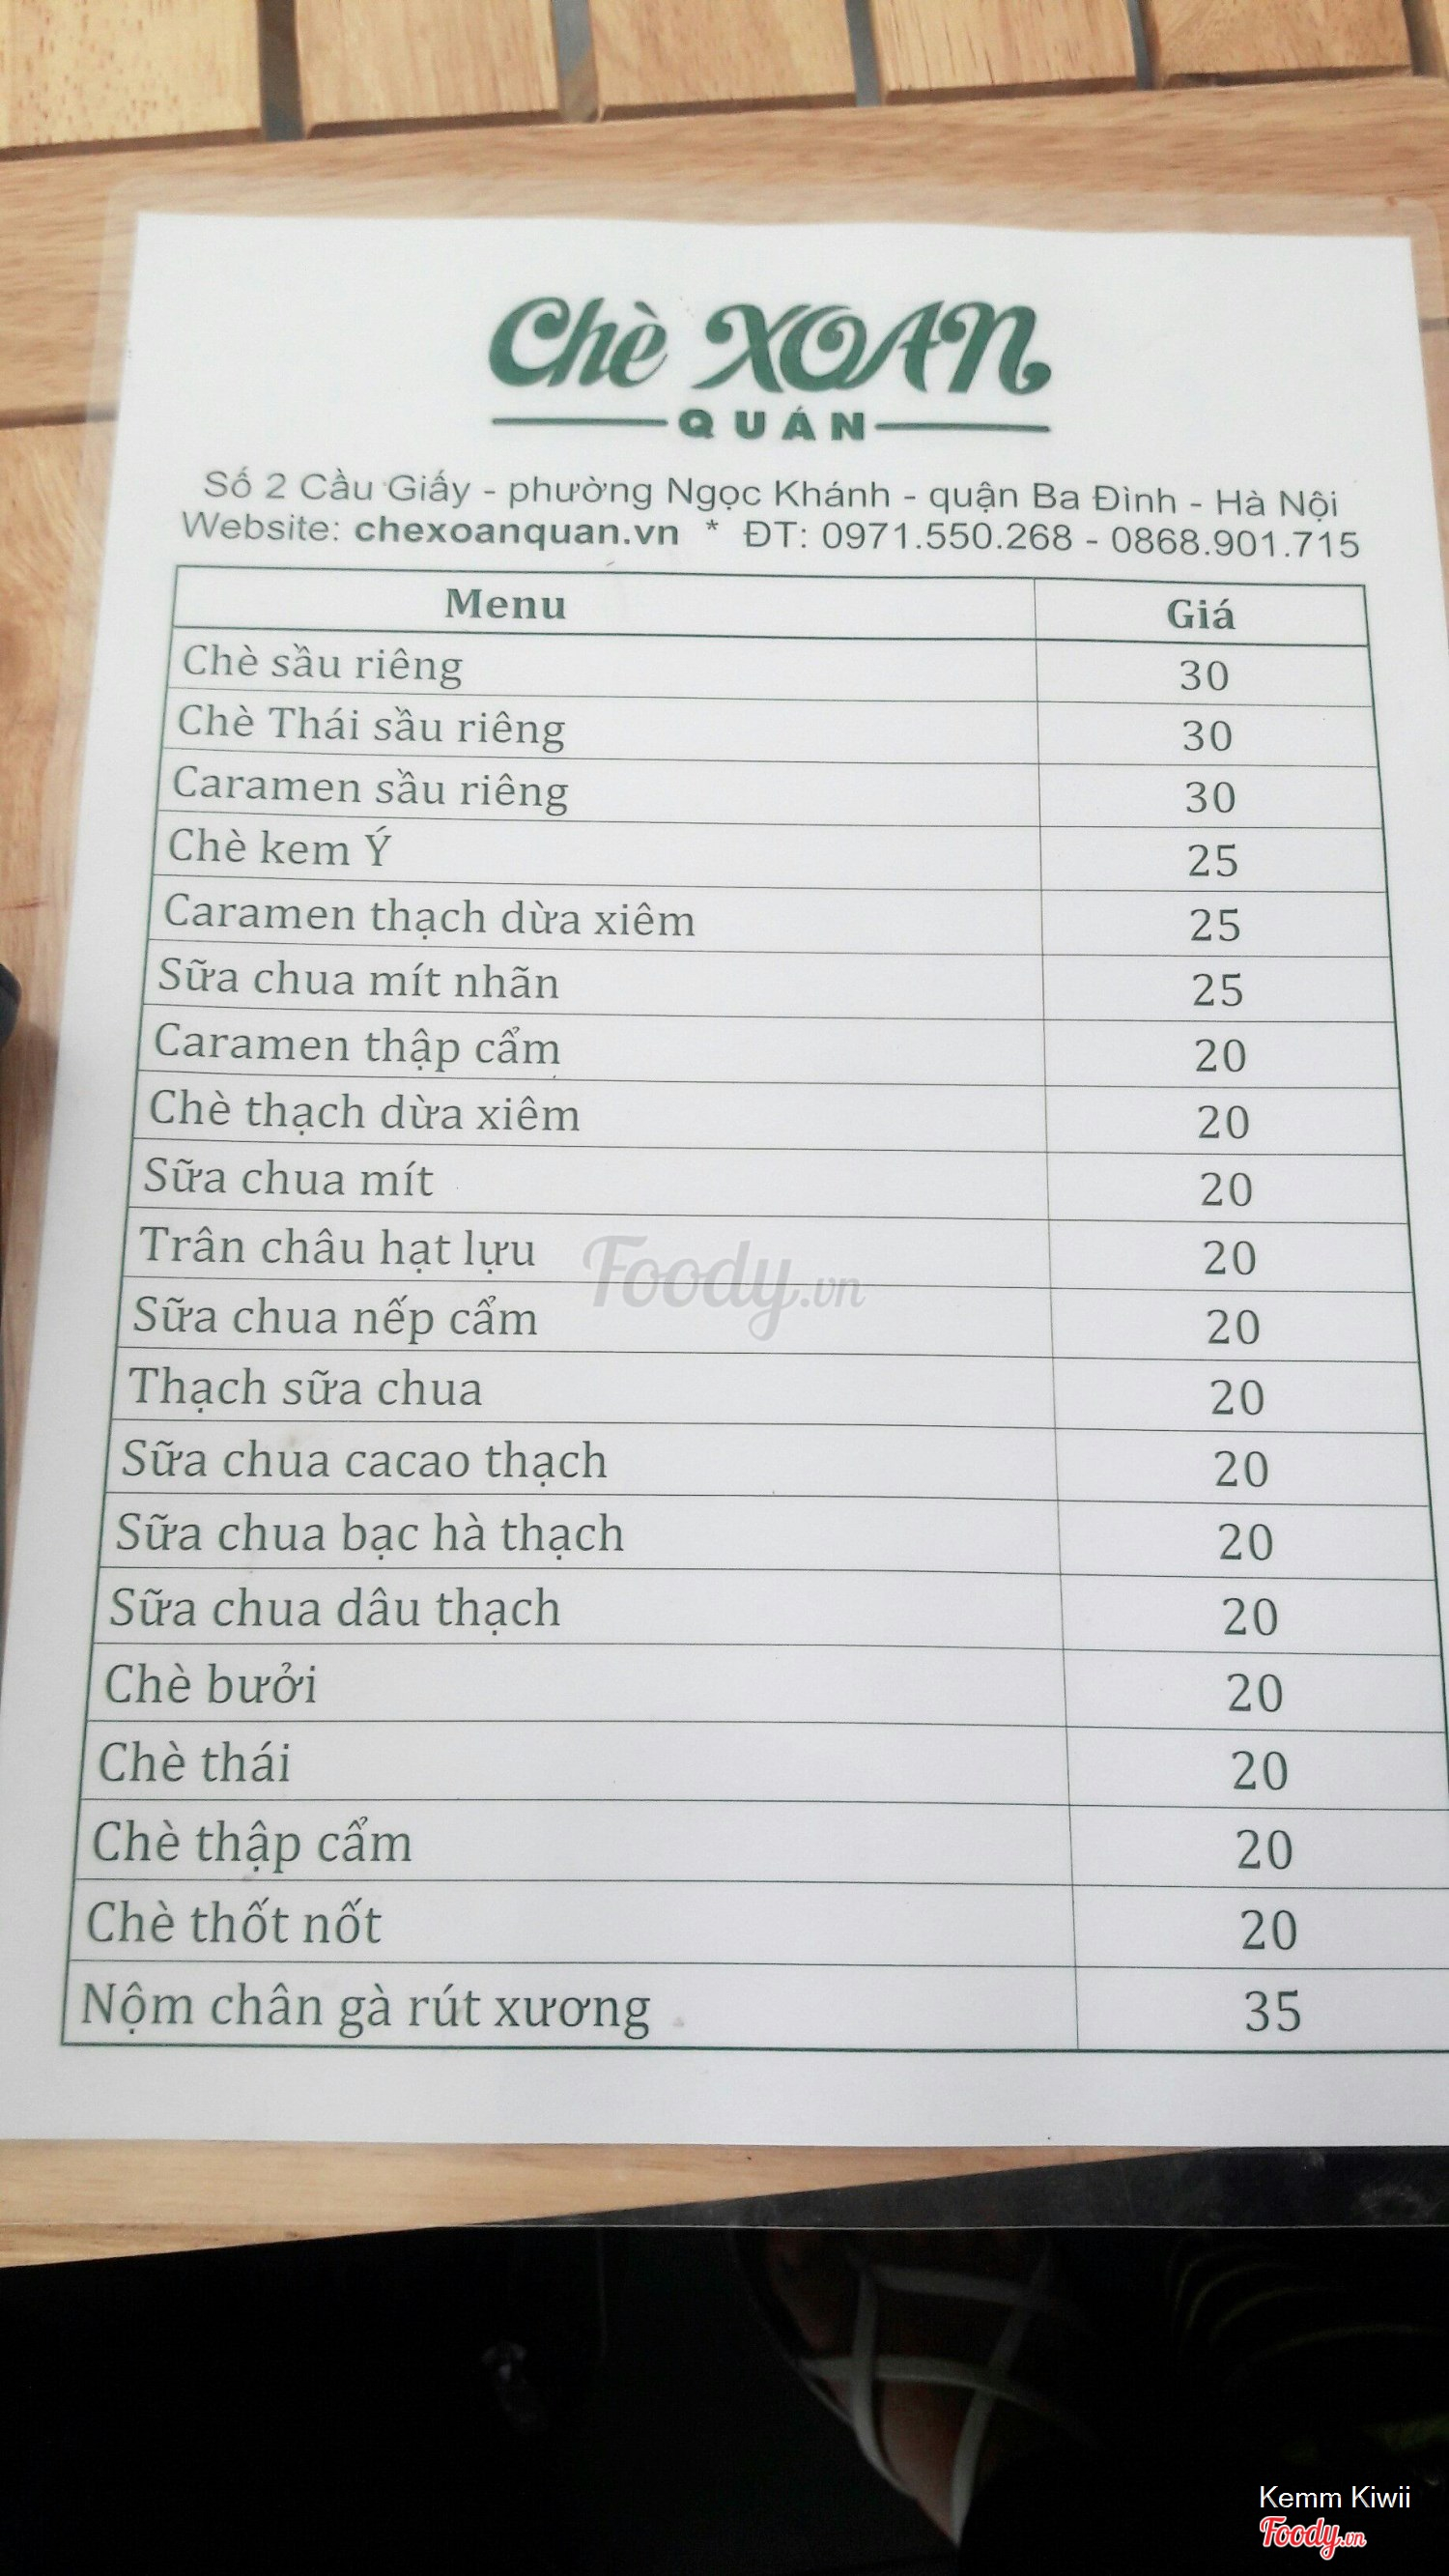 Chè XOAN
QUÁN
Số 2 Cầu Giấy - phường Ngọc Khánh - quận Ba Đình - Hà Nội
Website: chexoanquan.vn * ĐT: 0971.550.268 - 0868.901.715
Menu Giá
Chè sầu riêng 30
Chè Thái sầu riêng 30
Caramen sầu riêng 30
Chè kem Ý 25
Caramen thạch dừa xiêm 25
Sữa chua mít nhãn 25
Caramen thập cẩm 20
Chè thạch dừa xiêm 20
Sữa chua mít 20
Trân châu hạt lựu 20
Foody.vn
Sữa chua nếp cẩm 20
Thạch sữa chua 20
Sữa chua cacao thạch 20
Sữa chua bạc hà thạch 20
Sữa chua dâu thạch 20
Chè bưởi 20
Chè thái 20
Chè thập cẩm 20
Chè thốt nốt 20
Nộm chân gà rút xương 35
Kemm Kiwii
Foody.vn